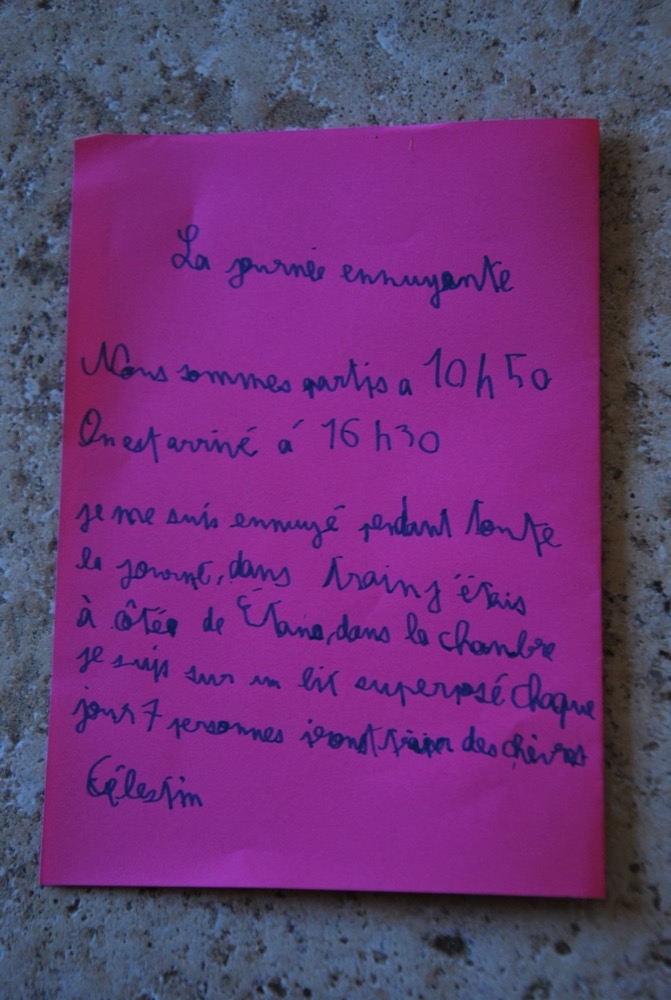 La journée ennuyante
Nous sommes partis a 10h50
On est arrivé à 16h30
je me suis ennuyé pendant toute
la journé, dans train j'étais
à côtée de Étans, dans la chambre
je suis sur un lit superposé chaque
jour 7 personnes iront traier des chèvres
Célestin